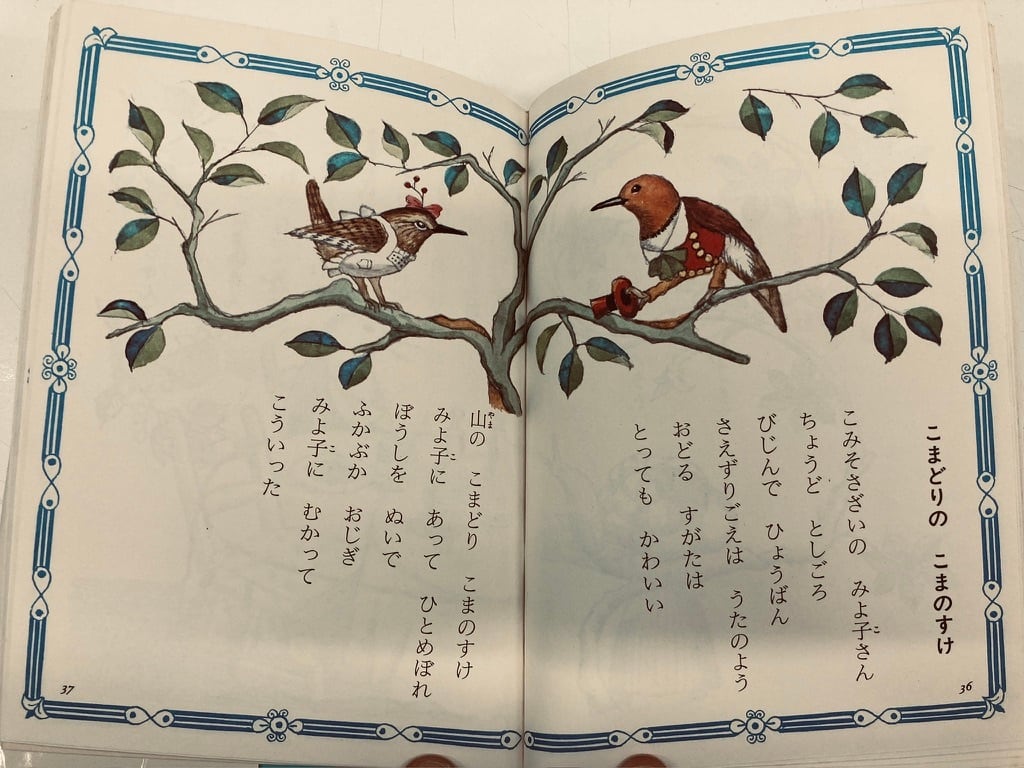 こまどりの　こまのすけ
こみそさざいの　みよ子さん
ちょうど　としごろ
びじんで　ひょうばん
さえずりごえは　うたのよう
おどる　すがたは
とっても　かわいい
36
山の　こまどり　こまのすけ
みよ子に　あって　ひとめぼれ
ぼうしを　ぬいで
ふかぶか　おじぎ
みよ子に　むかって
こういった
37